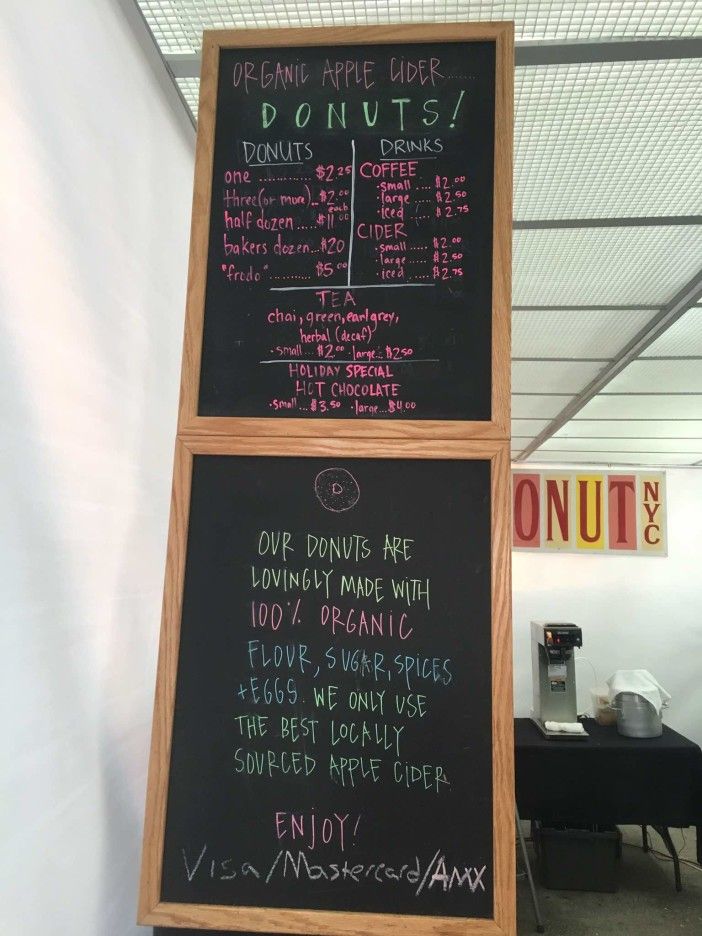 ORGANIC APPLE CIDER.......
DONUTS!
DONUTS
one ............ $2.25
three (or more)... $2.00 each
half dozen ..... $11.00
bakers dozen... $20
"frodo" .......... $5.00
DRINKS
COFFEE
• small .... $2.00
• large .... $2.50
• iced .... $2.75
CIDER
• small ..... $2.00
• large ..... $2.50
• iced ..... $2.75
TEA
chai, green, earl grey,
herbal (decaf)
• small... $2.00 • large... $2.50
HOLIDAY SPECIAL
HOT CHOCOLATE
• small... $3.50 • large... $4.00
D
OUR DONUTS ARE
LOVINGLY MADE WITH
100% ORGANIC
FLOUR, SUGAR, SPICES
+EGGS. WE ONLY USE
THE BEST LOCALLY
SOURCED APPLE CIDER.
ENJOY!
Visa/Mastercard/AmX
ONUT NYC